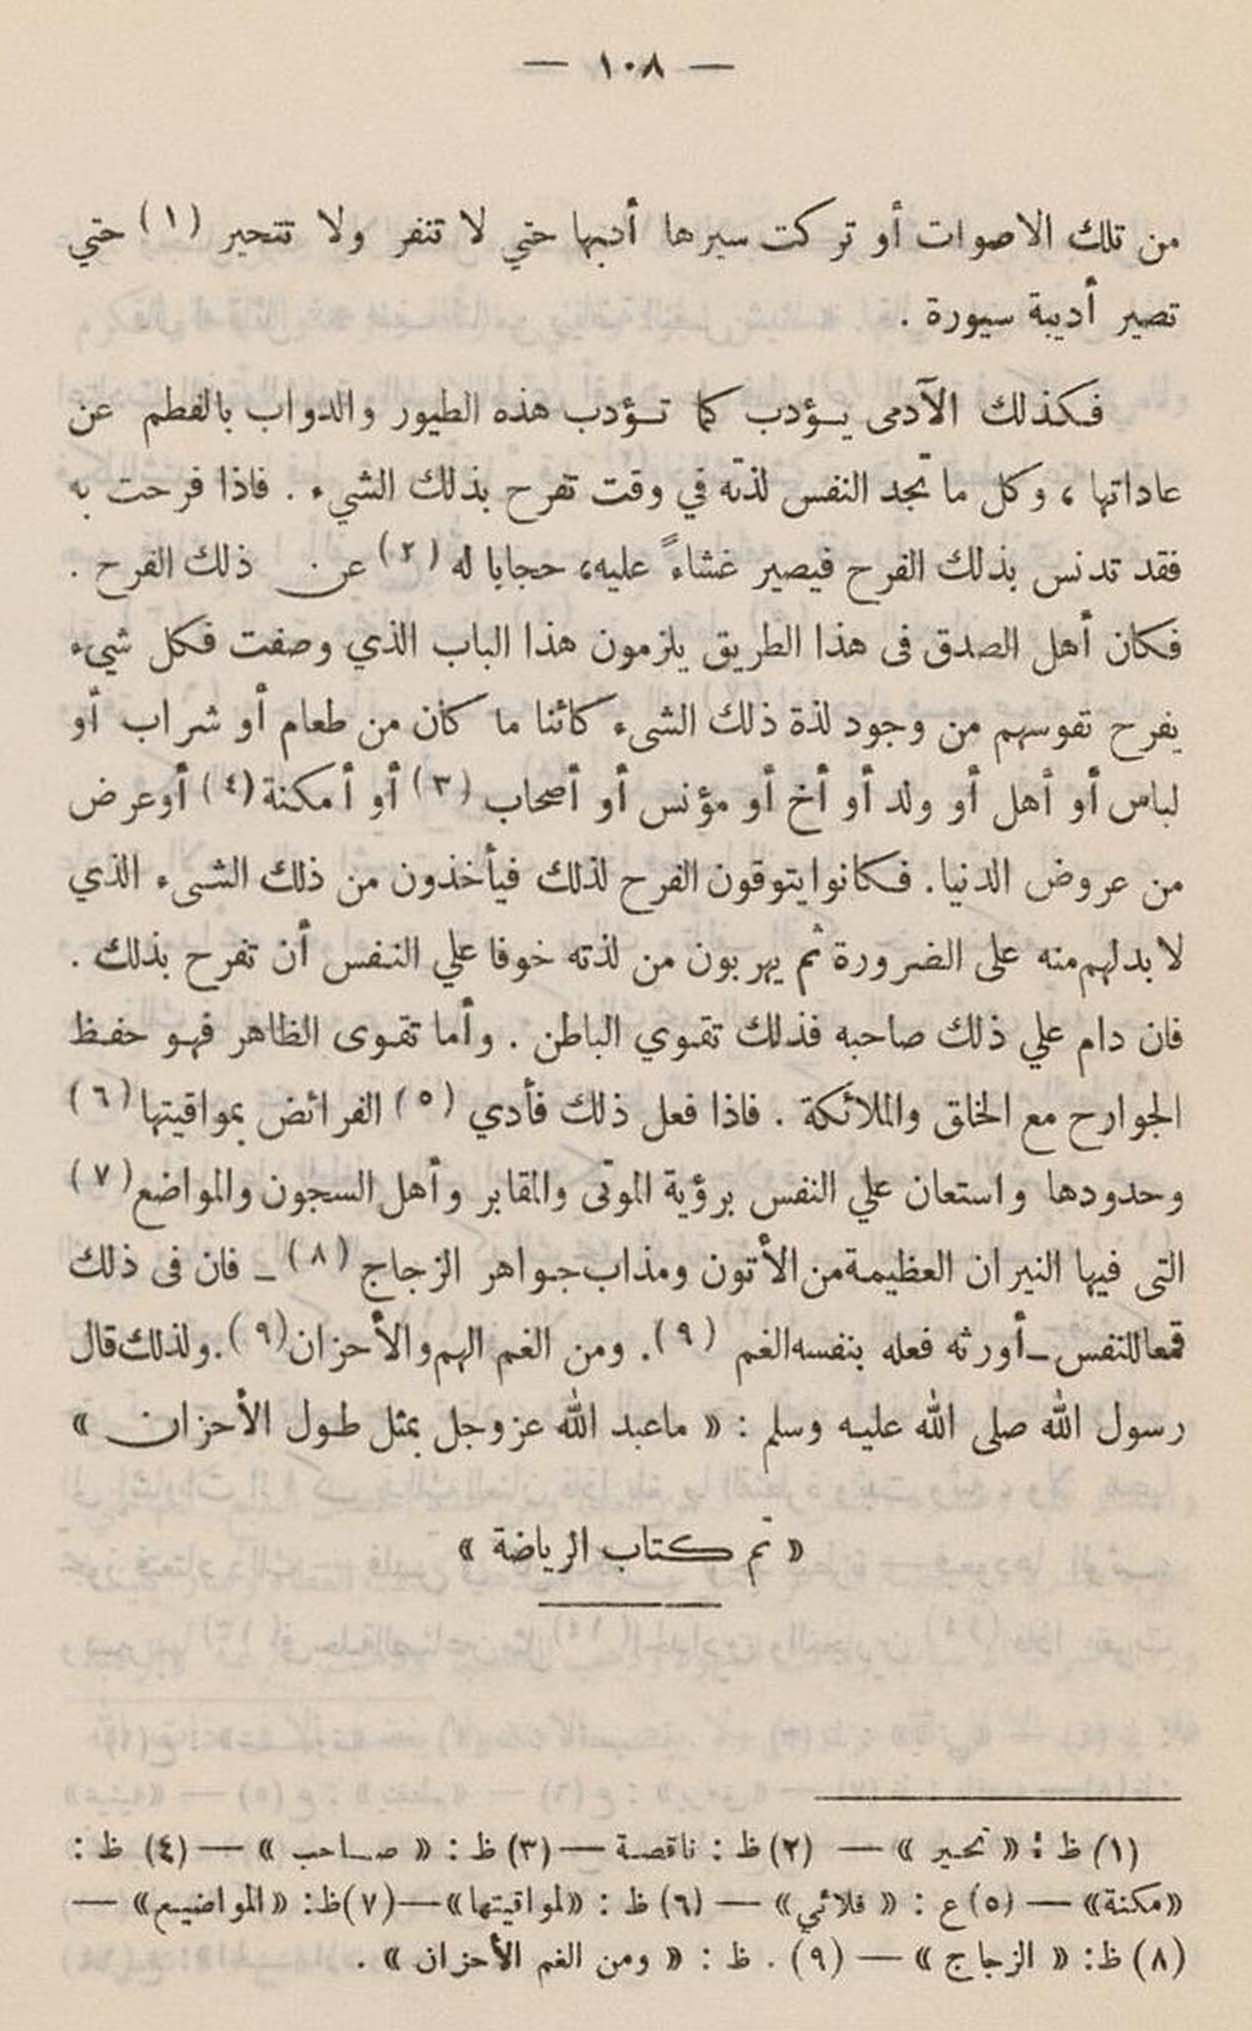 — ١٠٨ —
من تلك الاصوات أو تركت سيرها أدبها حتي لا تنفر ولا تتحير (١) حتي
تصير أديبة سيورة .
فكذلك الآدمى يؤدب كما تؤدب هذه الطيور والدواب بالفطم عن
عاداتها ، وكل ما تجد النفس لذته في وقت تفرح بذلك الشيء . فاذا فرحت به
فقد تدنس بذلك الفرح فيصير غشاءً عليه، حجابا له (٢) عن ذلك الفرح .
فكان أهل الصدق فى هذا الطريق يلزمون هذا الباب الذي وصفت فكل شيء
يفرح تفوسهم من وجود لذة ذلك الشىء كائنا ما كان من طعام أو شراب أو
لباس أو أهل أو ولد أو أخ أو مؤنس أو أصحاب (٣) أو أمكنة (٤) أوعرض
من عروض الدنيا. فكانوا يتوقون الفرح لذلك فيأخذون من ذلك الشىء الذي
لا بد لهم منه على الضرورة ثم يهربون من لذته خوفا علي النفس أن تفرح بذلك .
فان دام علي ذلك صاحبه فذلك تقوي الباطن . وأما تقوى الظاهر فهو حفظ
الجوارح مع الخلق والملائكة . فاذا فعل ذلك فأدي (٥) الفرائض بمواقيتها (٦)
وحدودها واستعان علي النفس برؤية الموتى والمقابر وأهل السجون والمواضع (٧)
التى فيها النيران العظيمة من الأتون ومذاب جواهر الزجاج (٨) – فان فى ذلك
قمعا للنفس – أورثه فعله بنفسه الغم (٩). ومن الغم الهم والأحزان (٩). ولذلك قال
رسول الله صلى الله عليه وسلم : « ماعبد الله عز وجل بمثل طول الأحزان »
« تم كتاب الرياضة »
(١) ظ : « تحير » — (٢) ظ : ناقصة — (٣) ظ : « صاحب » — (٤) ظ :
«مكنة» — (٥) ع : « فلائي» — (٦) ظ : «لمواقيتها» — (٧) ظ: «المواضيع» —
(٨) ظ: « الزجاج » — (٩) . ظ : « ومن الغم الأحزان » .